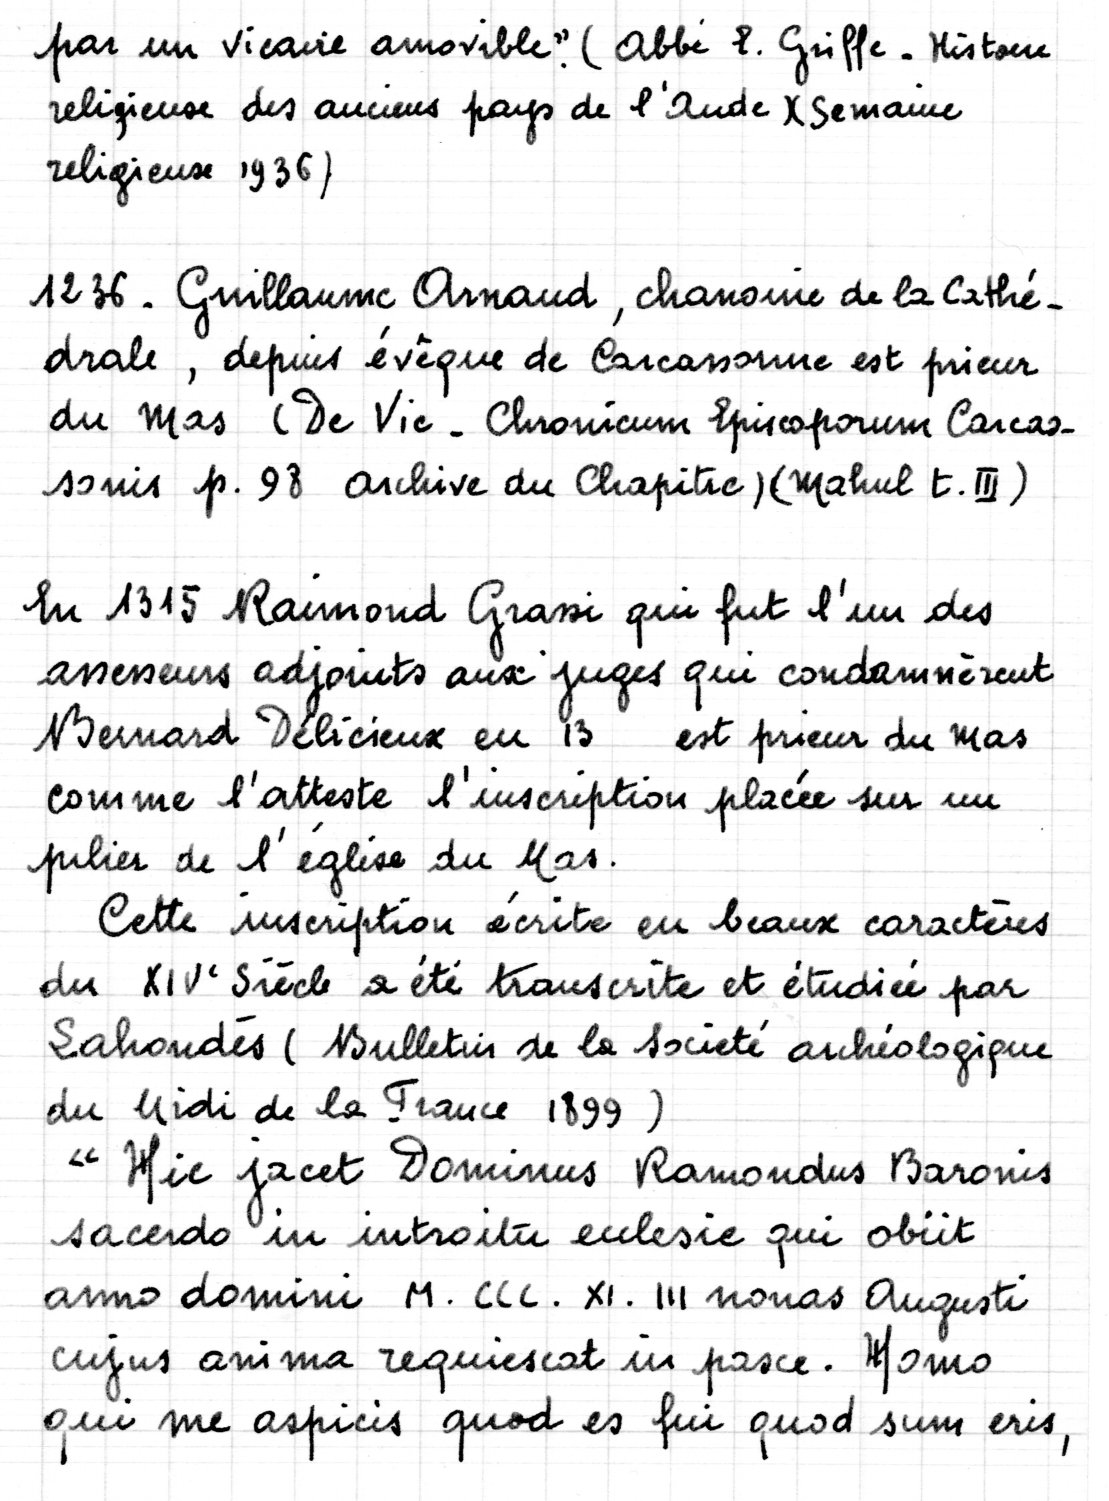 par un vicaire amovible". (Abbé E. Griffe - Histoire
religieuse des anciens pays de l'Aude X Semaine
religieuse 1936)
1236 - Guillaume Arnaud, chanoine de la Cathé-
drale, depuis évêque de Carcassonne est prieur
du Mas (De Vic - Chronicum Episcoporum Carcas-
sonis p. 98 archive du Chapitre) (Mahul t. III)
En 1315 Raimond Grassi qui fut l'un des
assesseurs adjoints aux juges qui condamnèrent
Bernard Délicieux en 13 est prieur du Mas
comme l'atteste l'inscription placée sur un
pilier de l'église du Mas.
Cette inscription écrite en beaux caractères
du XIVe Siècle a été transcrite et étudiée par
Lahondès (Bulletin de la Société archéologique
du Midi de la France 1899)
"Hic jacet Dominus Ramondus Baronis
sacerdo in introitu eclesie qui obiit
anno domini M. CCC. XI. III nonas Augusti
cujus anima requiescat in pasce. Homo
qui me aspicis quod es fui quod sum eris,